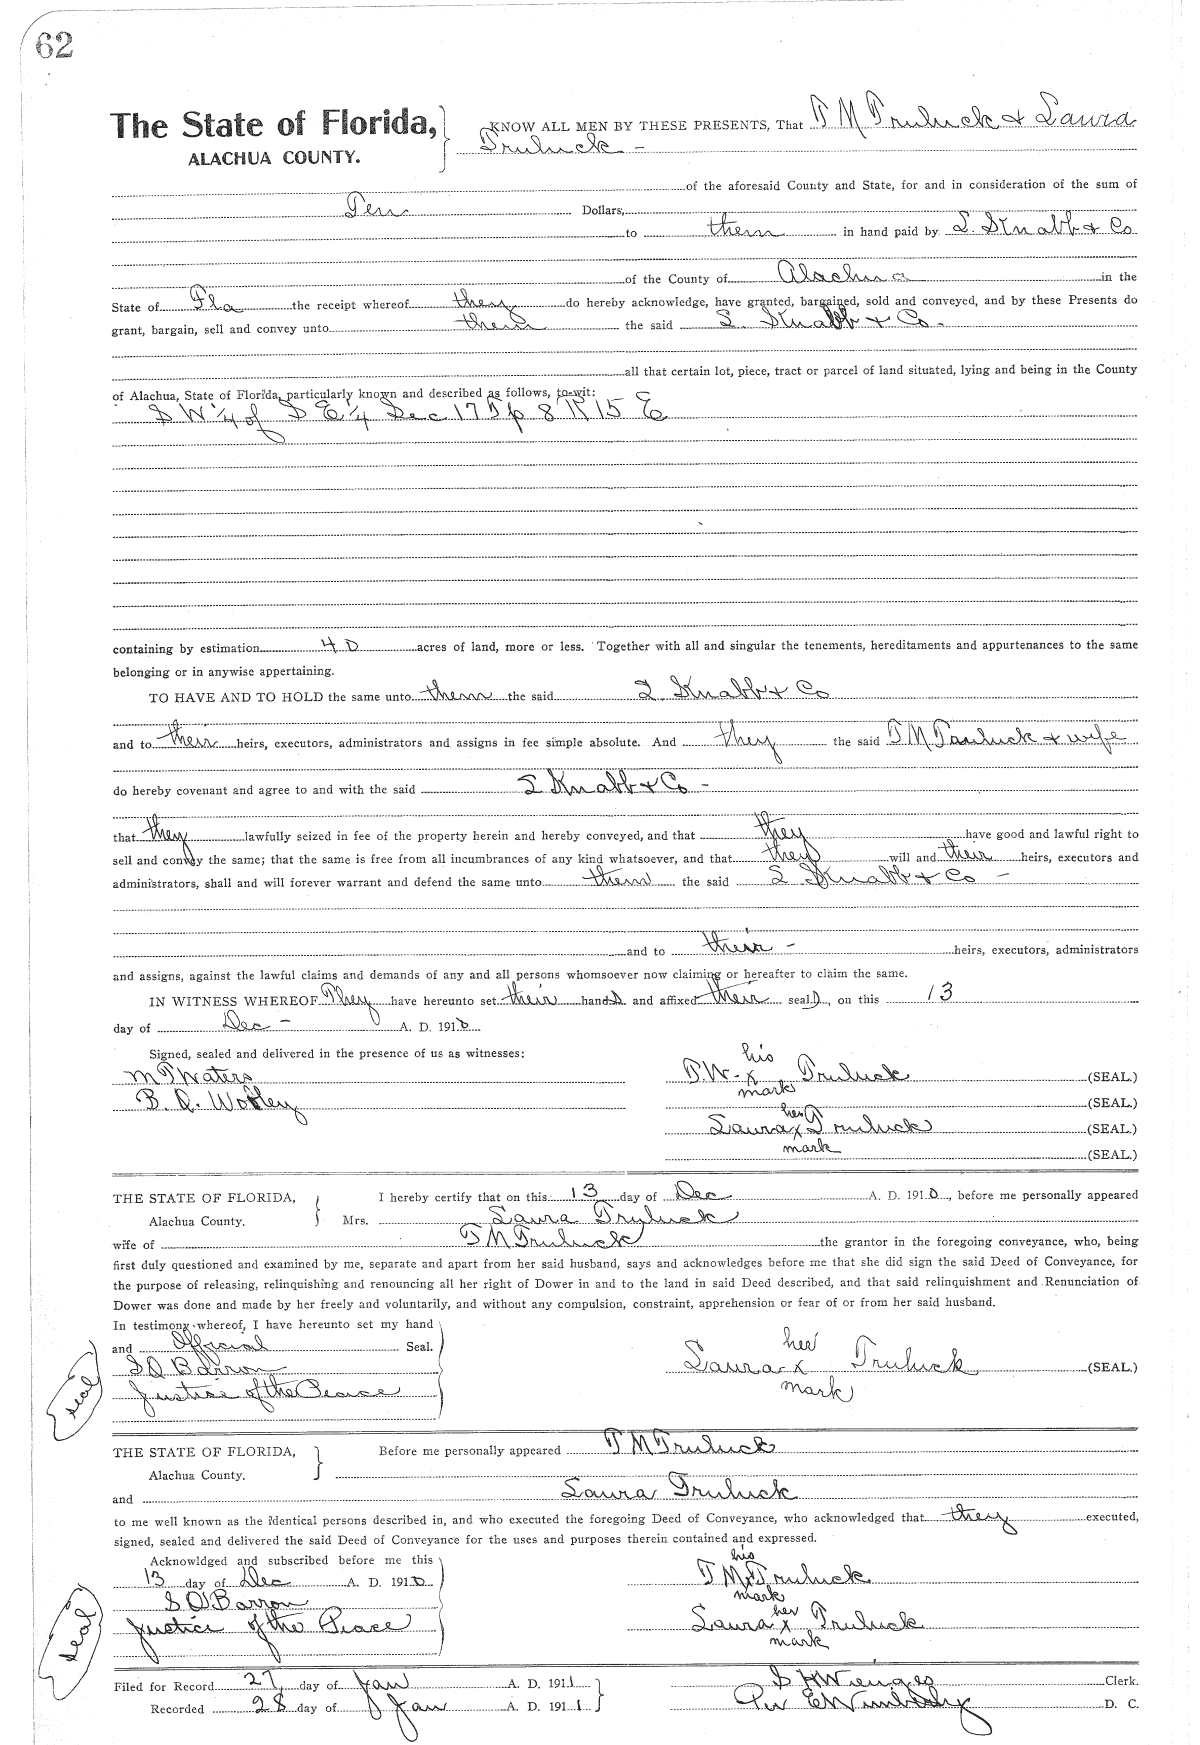 62
The State of Florida, KNOW ALL MEN BY THESE PRESENTS, That T M Truluck & Laura
ALACHUA COUNTY. Truluck -
of the aforesaid County and State, for and in consideration of the sum of
Ten Dollars,
to them in hand paid by L. Knabb & Co
of the County of Alachua in the
State of Fla the receipt whereof they do hereby acknowledge, have granted, bargained, sold and conveyed, and by these Presents do
grant, bargain, sell and convey unto them the said L. Knabb & Co.
all that certain lot, piece, tract or parcel of land situated, lying and being in the County
of Alachua, State of Florida, particularly known and described as follows, to-wit:
S W 1/4 of S E 1/4 Sec 17 Tp 8 R 15 E
containing by estimation 40 acres of land, more or less. Together with all and singular the tenements, hereditaments and appurtenances to the same
belonging or in anywise appertaining.
TO HAVE AND TO HOLD the same unto them the said L Knabb & Co
and to their heirs, executors, administrators and assigns in fee simple absolute. And they the said T M Truluck & wife
do hereby covenant and agree to and with the said L Knabb & Co -
that they lawfully seized in fee of the property herein and hereby conveyed, and that they have good and lawful right to
sell and convey the same; that the same is free from all incumbrances of any kind whatsoever, and that they will and their heirs, executors and
administrators, shall and will forever warrant and defend the same unto them the said L Knabb & Co -
and to their - heirs, executors, administrators
and assigns, against the lawful claims and demands of any and all persons whomsoever now claiming or hereafter to claim the same.
IN WITNESS WHEREOF They have hereunto set their hands and affixed their seals, on this 13
day of Dec - A. D. 1910
Signed, sealed and delivered in the presence of us as witnesses:
M T Waters
B. D.
his
T W - x Truluck (SEAL.)
mark
(SEAL.)
her
Laura x Truluck (SEAL.)
mark
(SEAL.)
THE STATE OF FLORIDA, I hereby certify that on this 13 day of Dec A. D. 1910, before me personally appeared
Alachua County. Mrs. Laura Truluck
wife of T M Truluck the grantor in the foregoing conveyance, who, being
first duly questioned and examined by me, separate and apart from her said husband, says and acknowledges before me that she did sign the said Deed of Conveyance, for
the purpose of releasing, relinquishing and renouncing all her right of Dower in and to the land in said Deed described, and that said relinquishment and Renunciation of
Dower was done and made by her freely and voluntarily, and without any compulsion, constraint, apprehension or fear of or from her said husband.
In testimony whereof, I have hereunto set my hand
and Official Seal.
S D Barron
Justice of the Peace
seal
her
Laura x Truluck (SEAL.)
mark
THE STATE OF FLORIDA, Before me personally appeared T M Truluck
Alachua County.
and Laura Truluck
to me well known as the identical persons described in, and who executed the foregoing Deed of Conveyance, who acknowledged that they executed,
signed, sealed and delivered the said Deed of Conveyance for the uses and purposes therein contained and expressed.
Acknowldged and subscribed before me this
13 day of Dec A. D. 1910
S D Barron
Justice of the Peace
seal
his
T M x Truluck
mark
her
Laura x Truluck
mark
Filed for Record 27 day of Jan A. D. 1911 S H Wienges Clerk.
Recorded 28 day of Jan A. D. 1911 Per E Wimberly D. C.